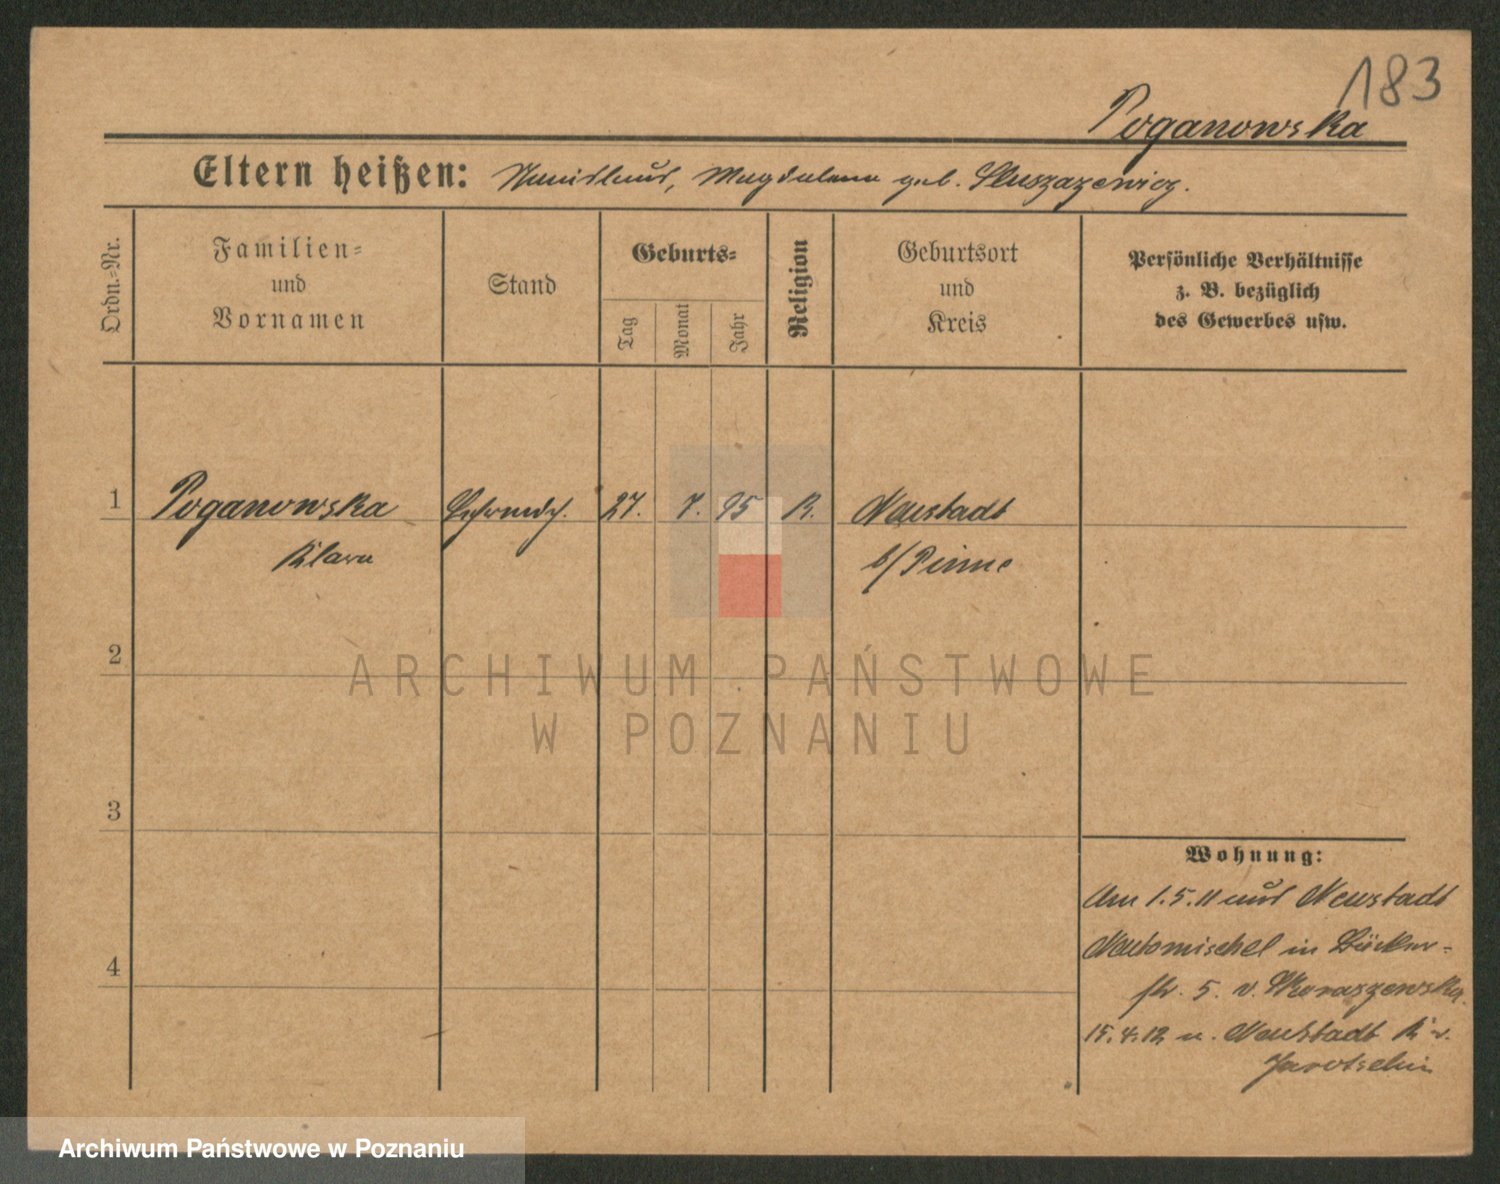 183
Poganowska
Eltern heißen: Stanislaus, Magdalena geb. Sluszazewicz.
Ordn.-Nr.
Familien-
und
Vornamen
Stand
Geburts-
Tag
Monat
Jahr
Religion
Geburtsort
und
Kreis
Persönliche Verhältnisse
z. B. bezüglich
des Gewerbes usw.
1 Poganowska 27. 7. 95 K. Neustadt
Klara b/Pinne
2
ARCHIWUM PAŃSTWOWE
W POZNANIU
3
Wohnung:
Am 1.5.11 aus Neustadt
Neutomischel in Bäcker-
4
str. 5. v.
15.4.12 n. Neustadt Kr.
Jarotschin
Archiwum Państwowe w Poznaniu